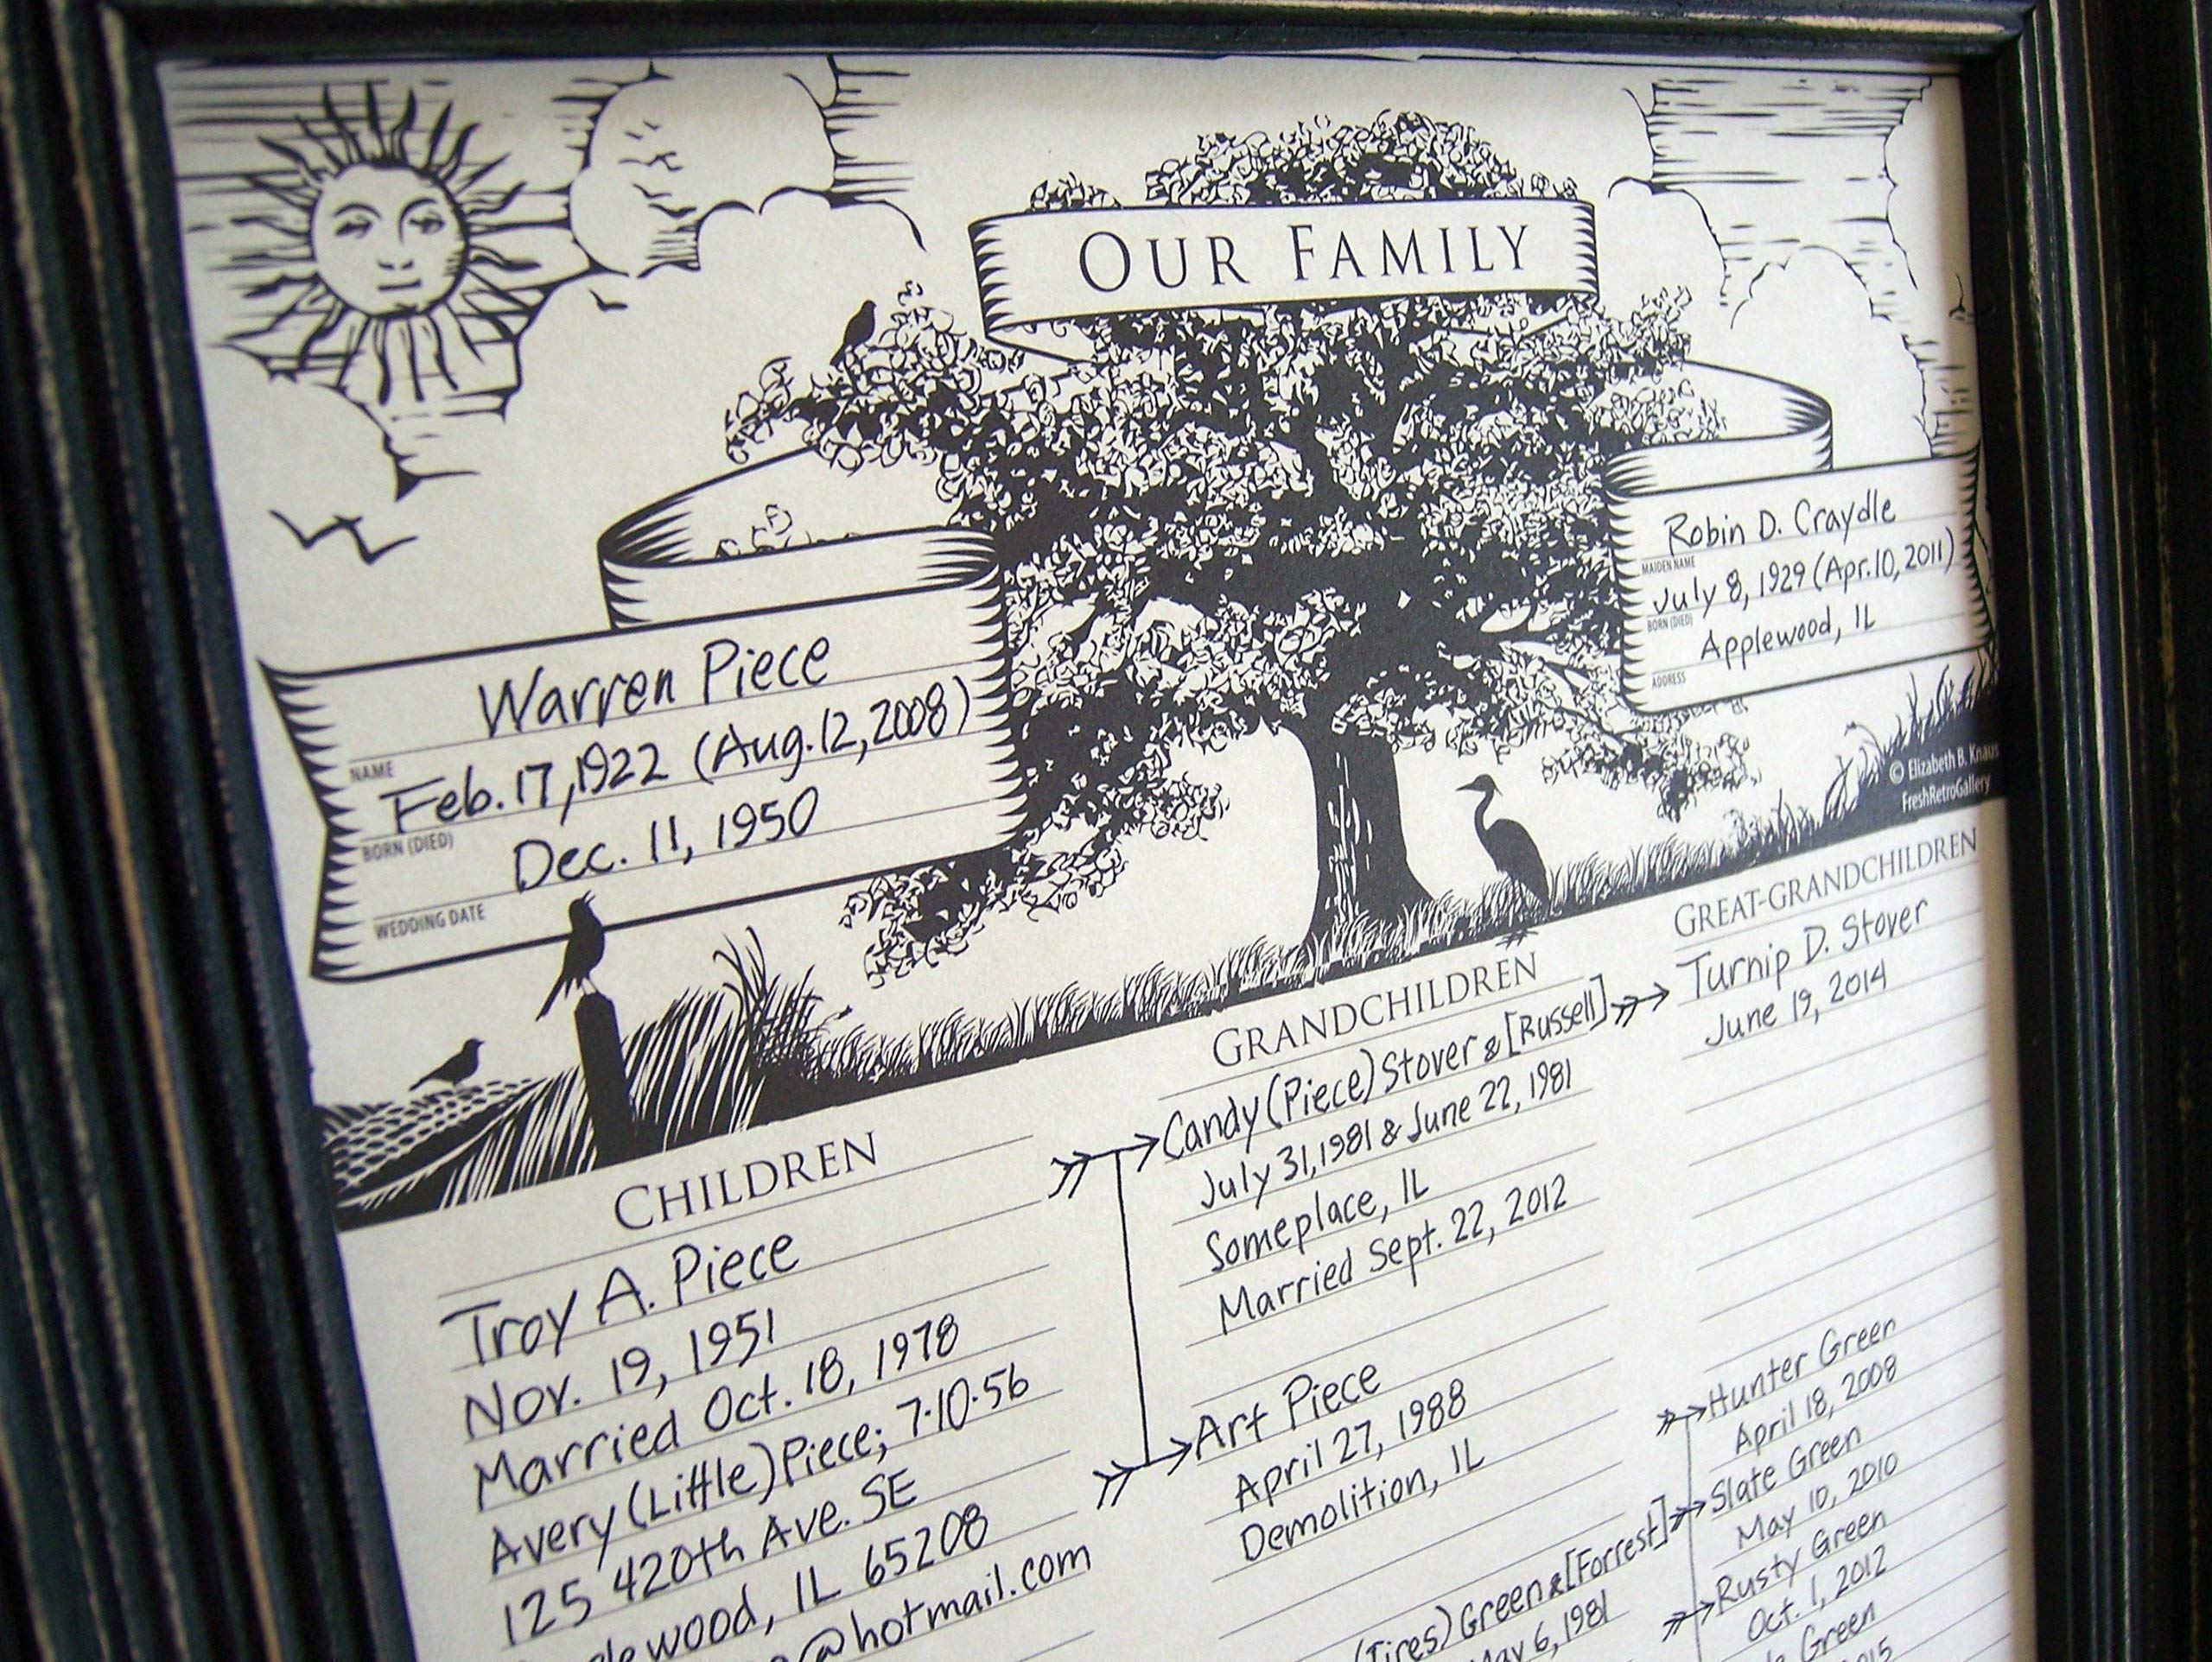 OUR FAMILY
Warren Piece
NAME
Feb. 17, 1922 (Aug. 12, 2008)
BORN (DIED)
Dec. 11, 1950
WEDDING DATE
Robin D. Craydle
MAIDEN NAME
July 8, 1929 (Apr. 10, 2011)
BORN (DIED)
Applewood, IL
ADDRESS
© Elizabeth B. Knaus
FreshRetroGallery
CHILDREN
Troy A. Piece
Nov. 19, 1951
Married Oct. 18, 1978
Avery (Little) Piece; 7-10-56
125 420th Ave. SE
IL 65208
@hotmail.com
GRANDCHILDREN
Candy (Piece) Stover & [Russell]
July 31, 1981 & June 22, 1981
Someplace, IL
Married Sept. 22, 2012
Art Piece
April 27, 1988
Demolition, IL
(Tires) Green & [Forrest]
May 6, 1981
GREAT-GRANDCHILDREN
Turnip D. Stover
June 19, 2014
Hunter Green
April 18, 2008
Slate Green
May 10, 2010
Rusty Green
Oct. 1, 2012
Green